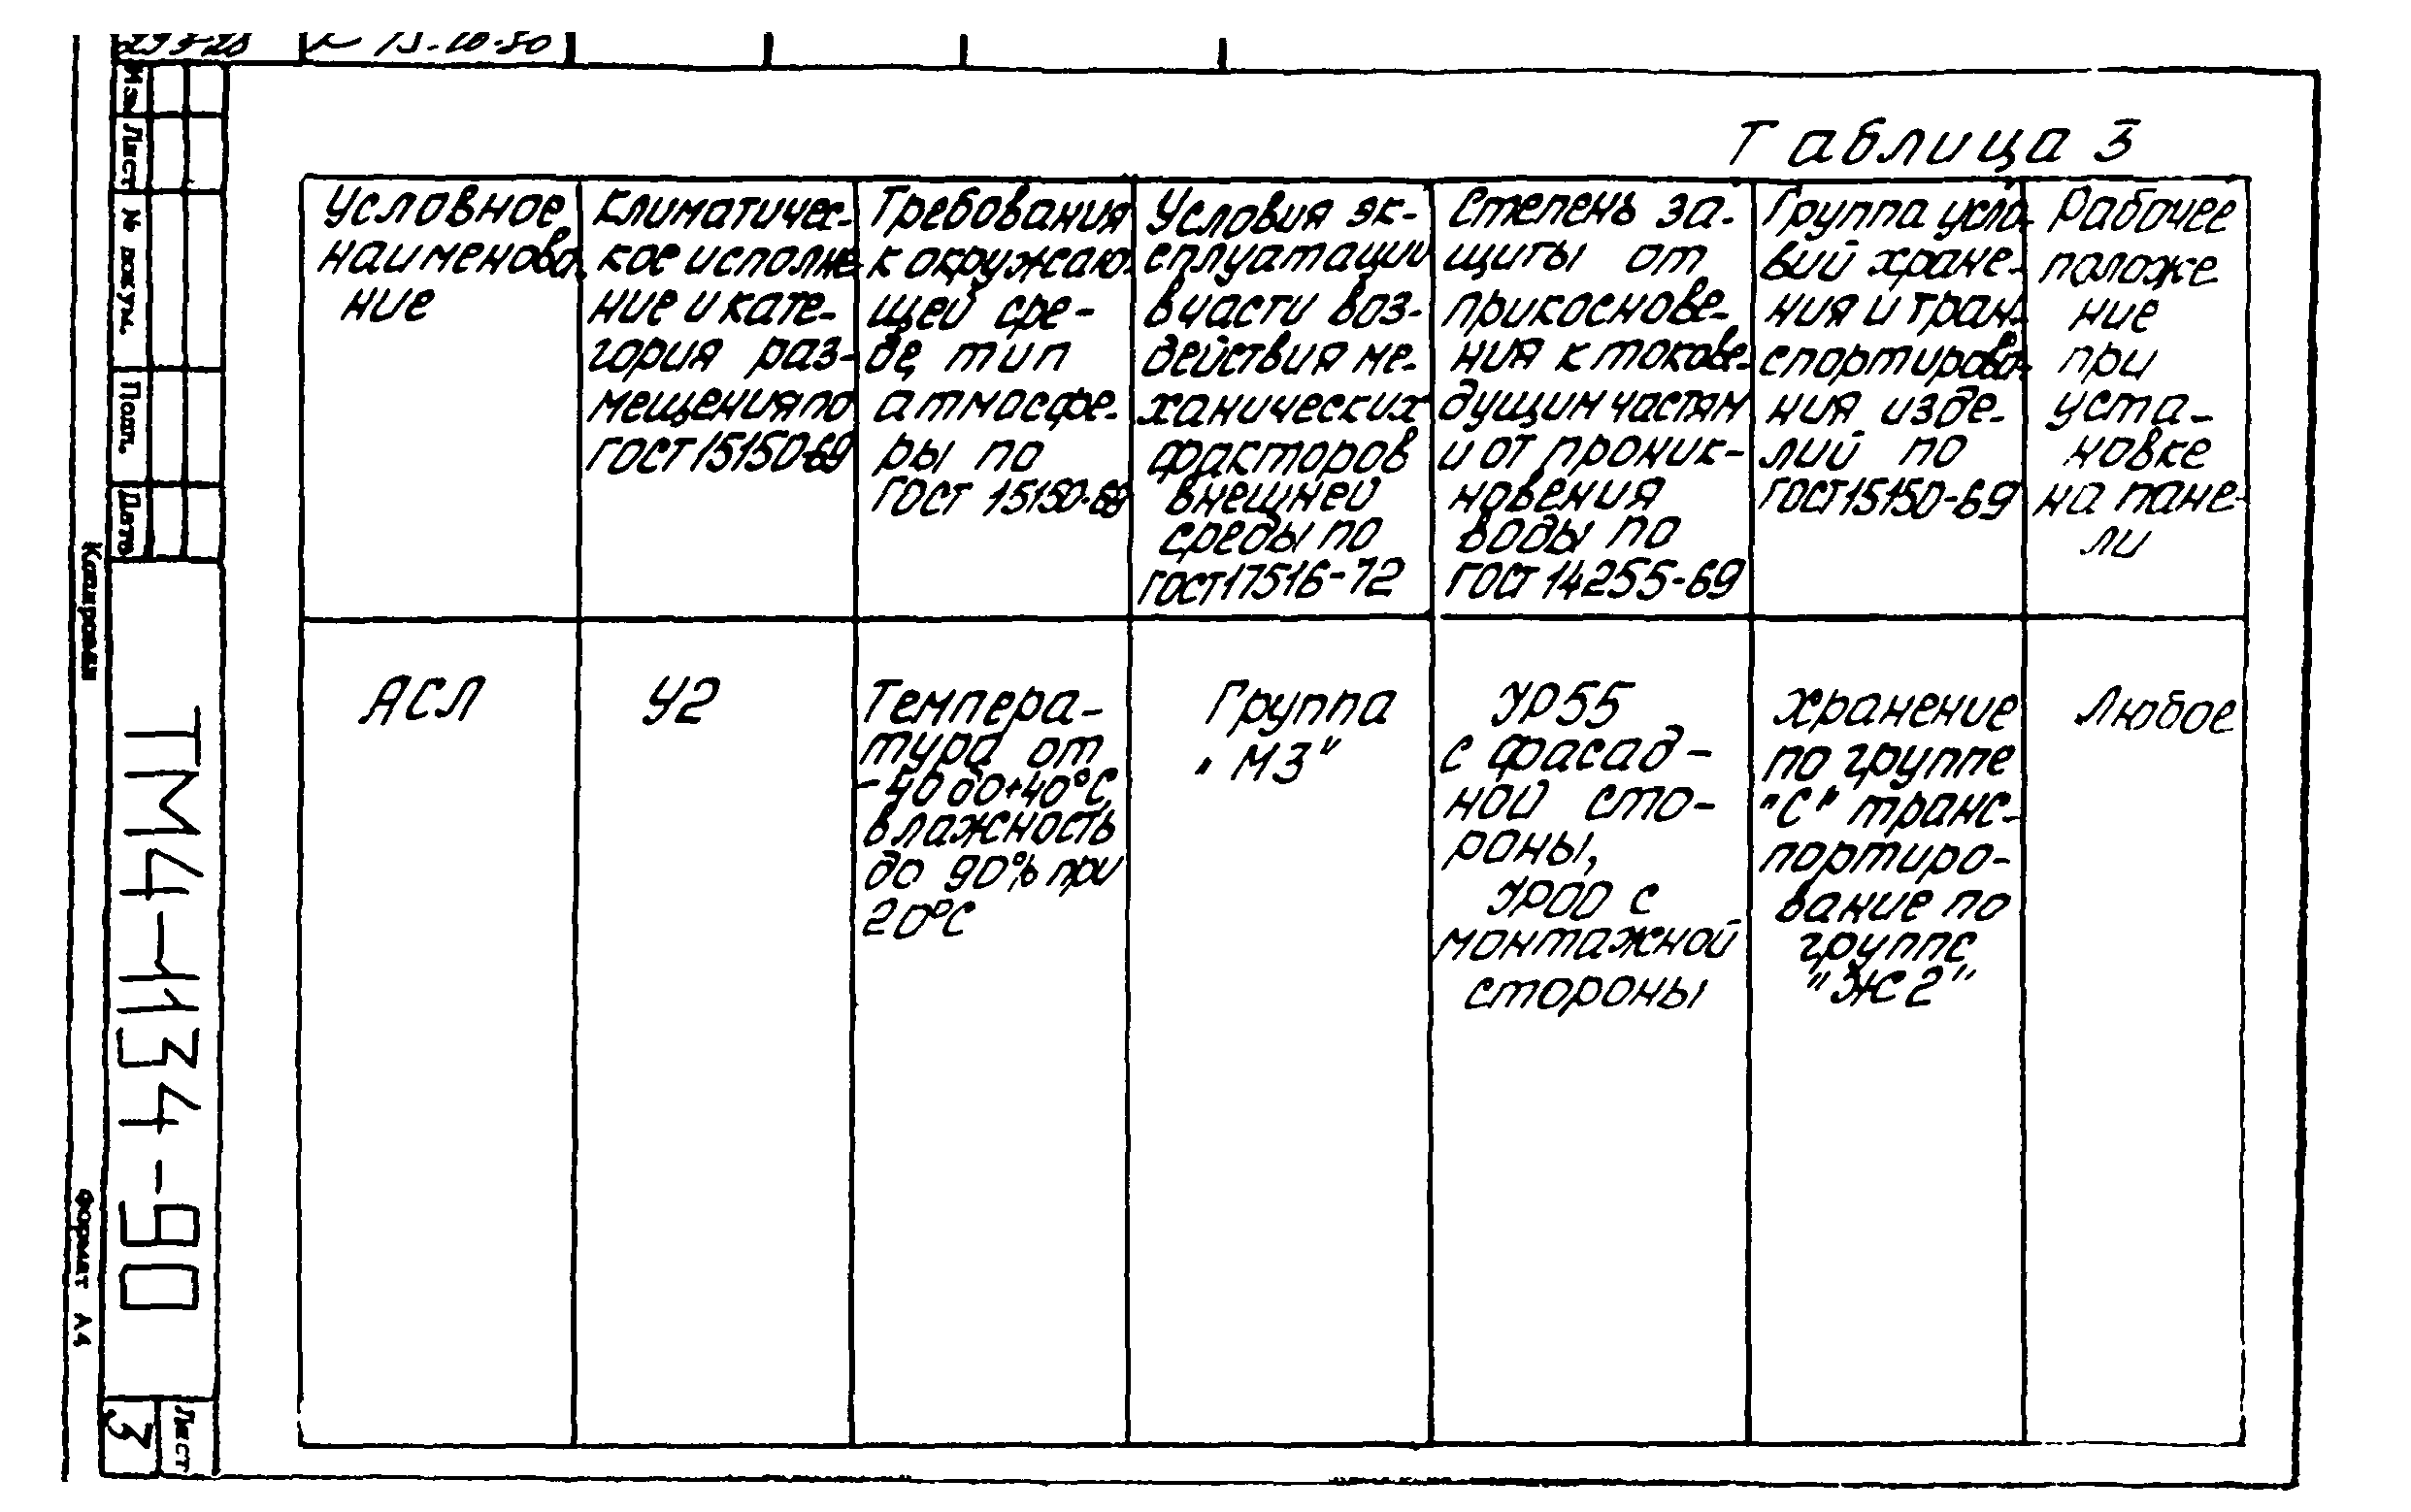 Таблица 3
Условное
наименова-
ние
Климатичес-
кое исполне-
ние и кате-
гория раз-
мещения по
ГОСТ 15150-69
Требования
к окружаю-
щей сре-
де, тип
атмосфе-
ры по
ГОСТ 15150-69
Условия эк-
сплуатации
в части воз-
действия ме-
ханических
факторов
внешней
среды по
ГОСТ 17516-72
Степень за-
щиты от
прикоснове-
ния к токове-
дущим частям
и от проник-
новения
воды по
ГОСТ 14255-69
Группа усло-
вий хране-
ния и тран-
спортирова-
ния изде-
лий по
ГОСТ 15150-69
Рабочее
положе
ние
при
уста-
новке
на пане-
ли
АСЛ
У2
Темпера-
тура от
-40 до +40°С,
влажность
до 90% при
20°С
Группа
"М3"
УР55
с фасад-
ной сто-
роны,
УР00 с
монтажной
стороны
Хранение
по группе
"С" транс-
портиро-
вание по
группе
"Ж2"
Любое
Изм
Лист
№ докум.
Подп.
Дата
ТМ4-1134-90
Лист
3
Копировал
Формат А4